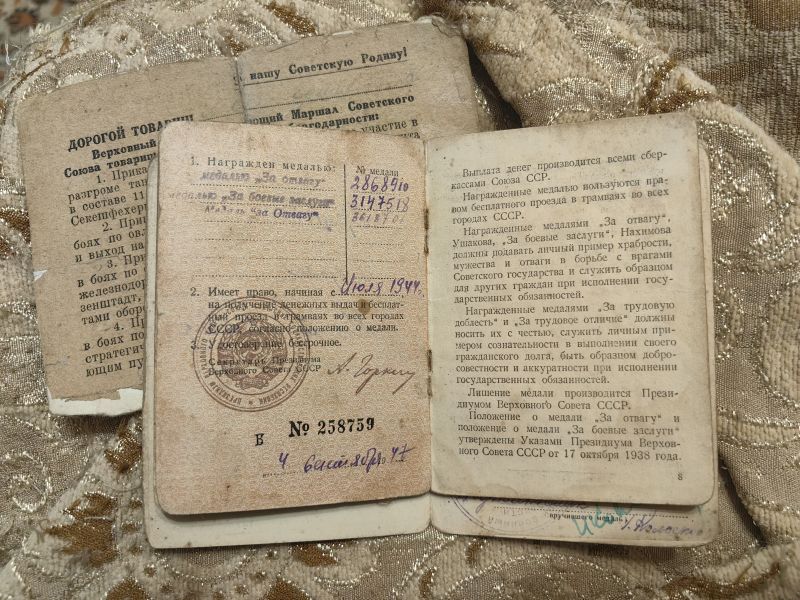 нашу Советскую Родину!
ДОРОГОЙ ТОВАРИЩ
Верховный
ющий Маршал Советского
Союза товарищ
благодарности:
1. Прика
участие в
разгроме тан
в составе 11
Секешфехер
2. При
боях по овл
и выход на
3. При
в боях по
железнодор
зенштадт,
тами оборо
4. Пр
в боях по
стратегич
ющим пу
1. Награжден медалью:
№ медали
медалью „За отвагу"
2868910
медалью „За боевые заслуги"
3147518
медаль "за Отвагу"
2. Имеет право, начиная с
Июля 1944г.
на получение денежных выдач и бесплат-
ный проезд в трамваях во всех городах
СССР, согласно положению о медали.
Удостоверение бессрочное.
Секретарь Президиума
Верховного Совета СССР
А. Горкин
Б № 258759
4 сентября 47
Выплата денег производится всеми сбер-
кассами Союза ССР.
Награжденные медалью пользуются пра-
вом бесплатного проезда в трамваях во всех
городах СССР.
Награжденные медалями „За отвагу",
Ушакова, „За боевые заслуги", Нахимова
должны подавать личный пример храбрости,
мужества и отваги в борьбе с врагами
Советского государства и служить образцом
для других граждан при исполнении госу-
дарственных обязанностей.
Награжденные медалями „За трудовую
доблесть" и „За трудовое отличие" должны
носить их с честью, служить личным при-
мером сознательности в выполнении своего
гражданского долга, быть образцом добро-
совестности и аккуратности при исполнении
государственных обязанностей.
Лишение медали производится Прези-
диумом Верховного Совета СССР.
Положение о медали „За отвагу" и
положение о медали „За боевые заслуги"
утверждены Указами Президиума Верхов-
ного Совета СССР от 17 октября 1938 года.
8
вручившего медаль